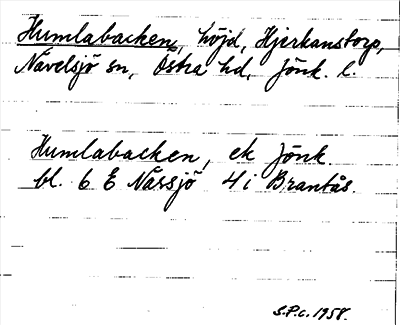 Humlabacken, höjd, Hjerkanstorp,
Nävelsjö sn, Östra hd, Jönk. l.
Humlabacken, ek Jönk
bl. 6 E Nässjö 4 i Brantås.
S.P.c. 1958.